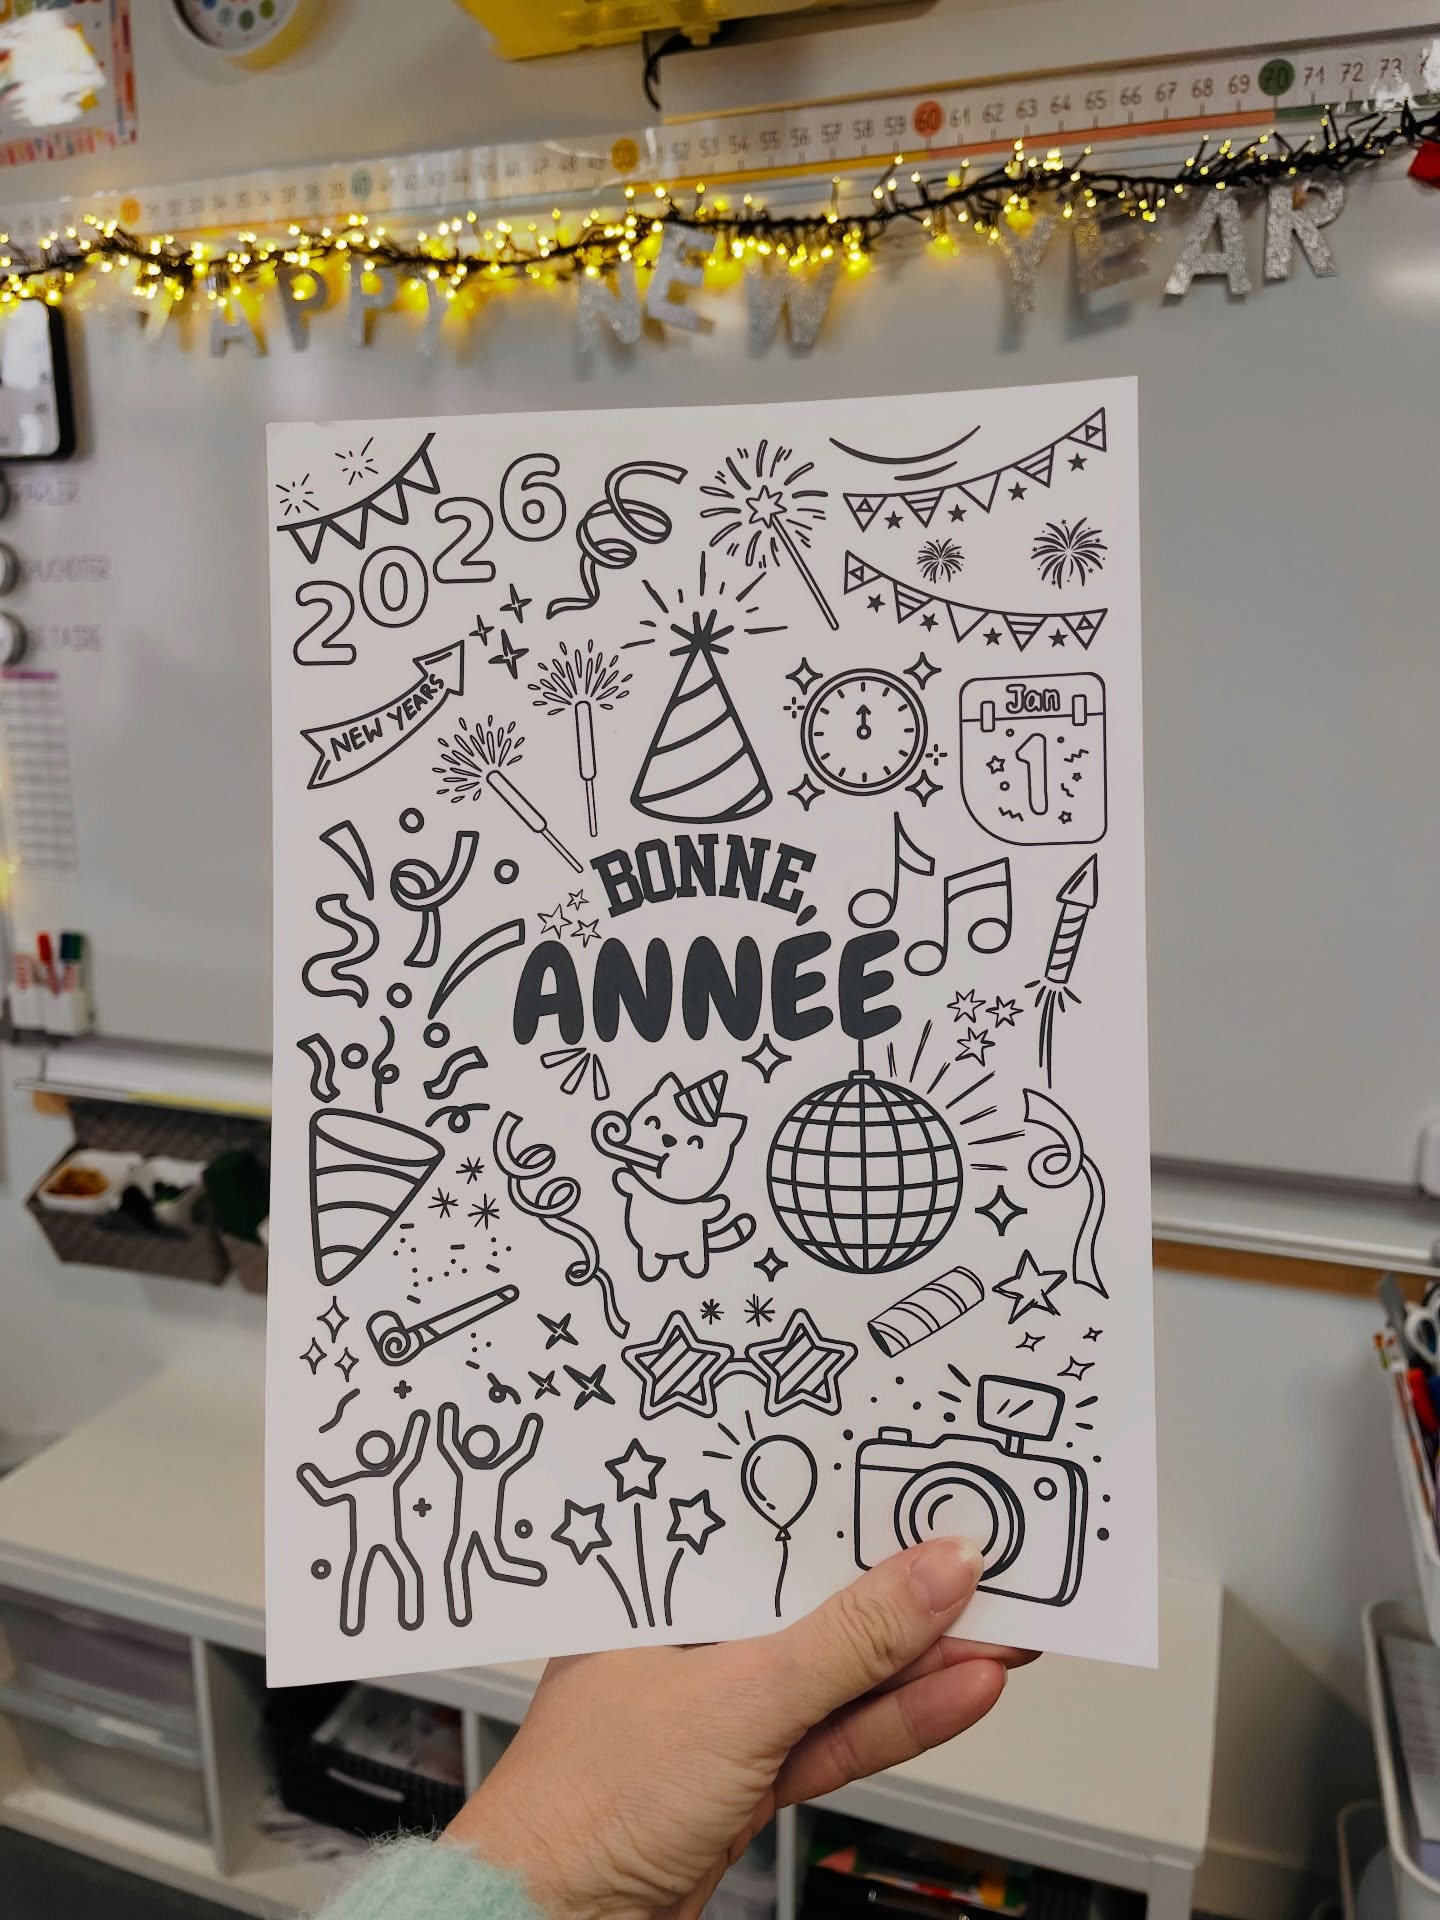 70 71 72 73
60 61 62 63 64 65 66 67 68 69
50 52 53 54 55 56 57 58 59
HAPPY NEW YEAR
2026
NEW YEARS
Jan
1
BONNE,
ANNÉE